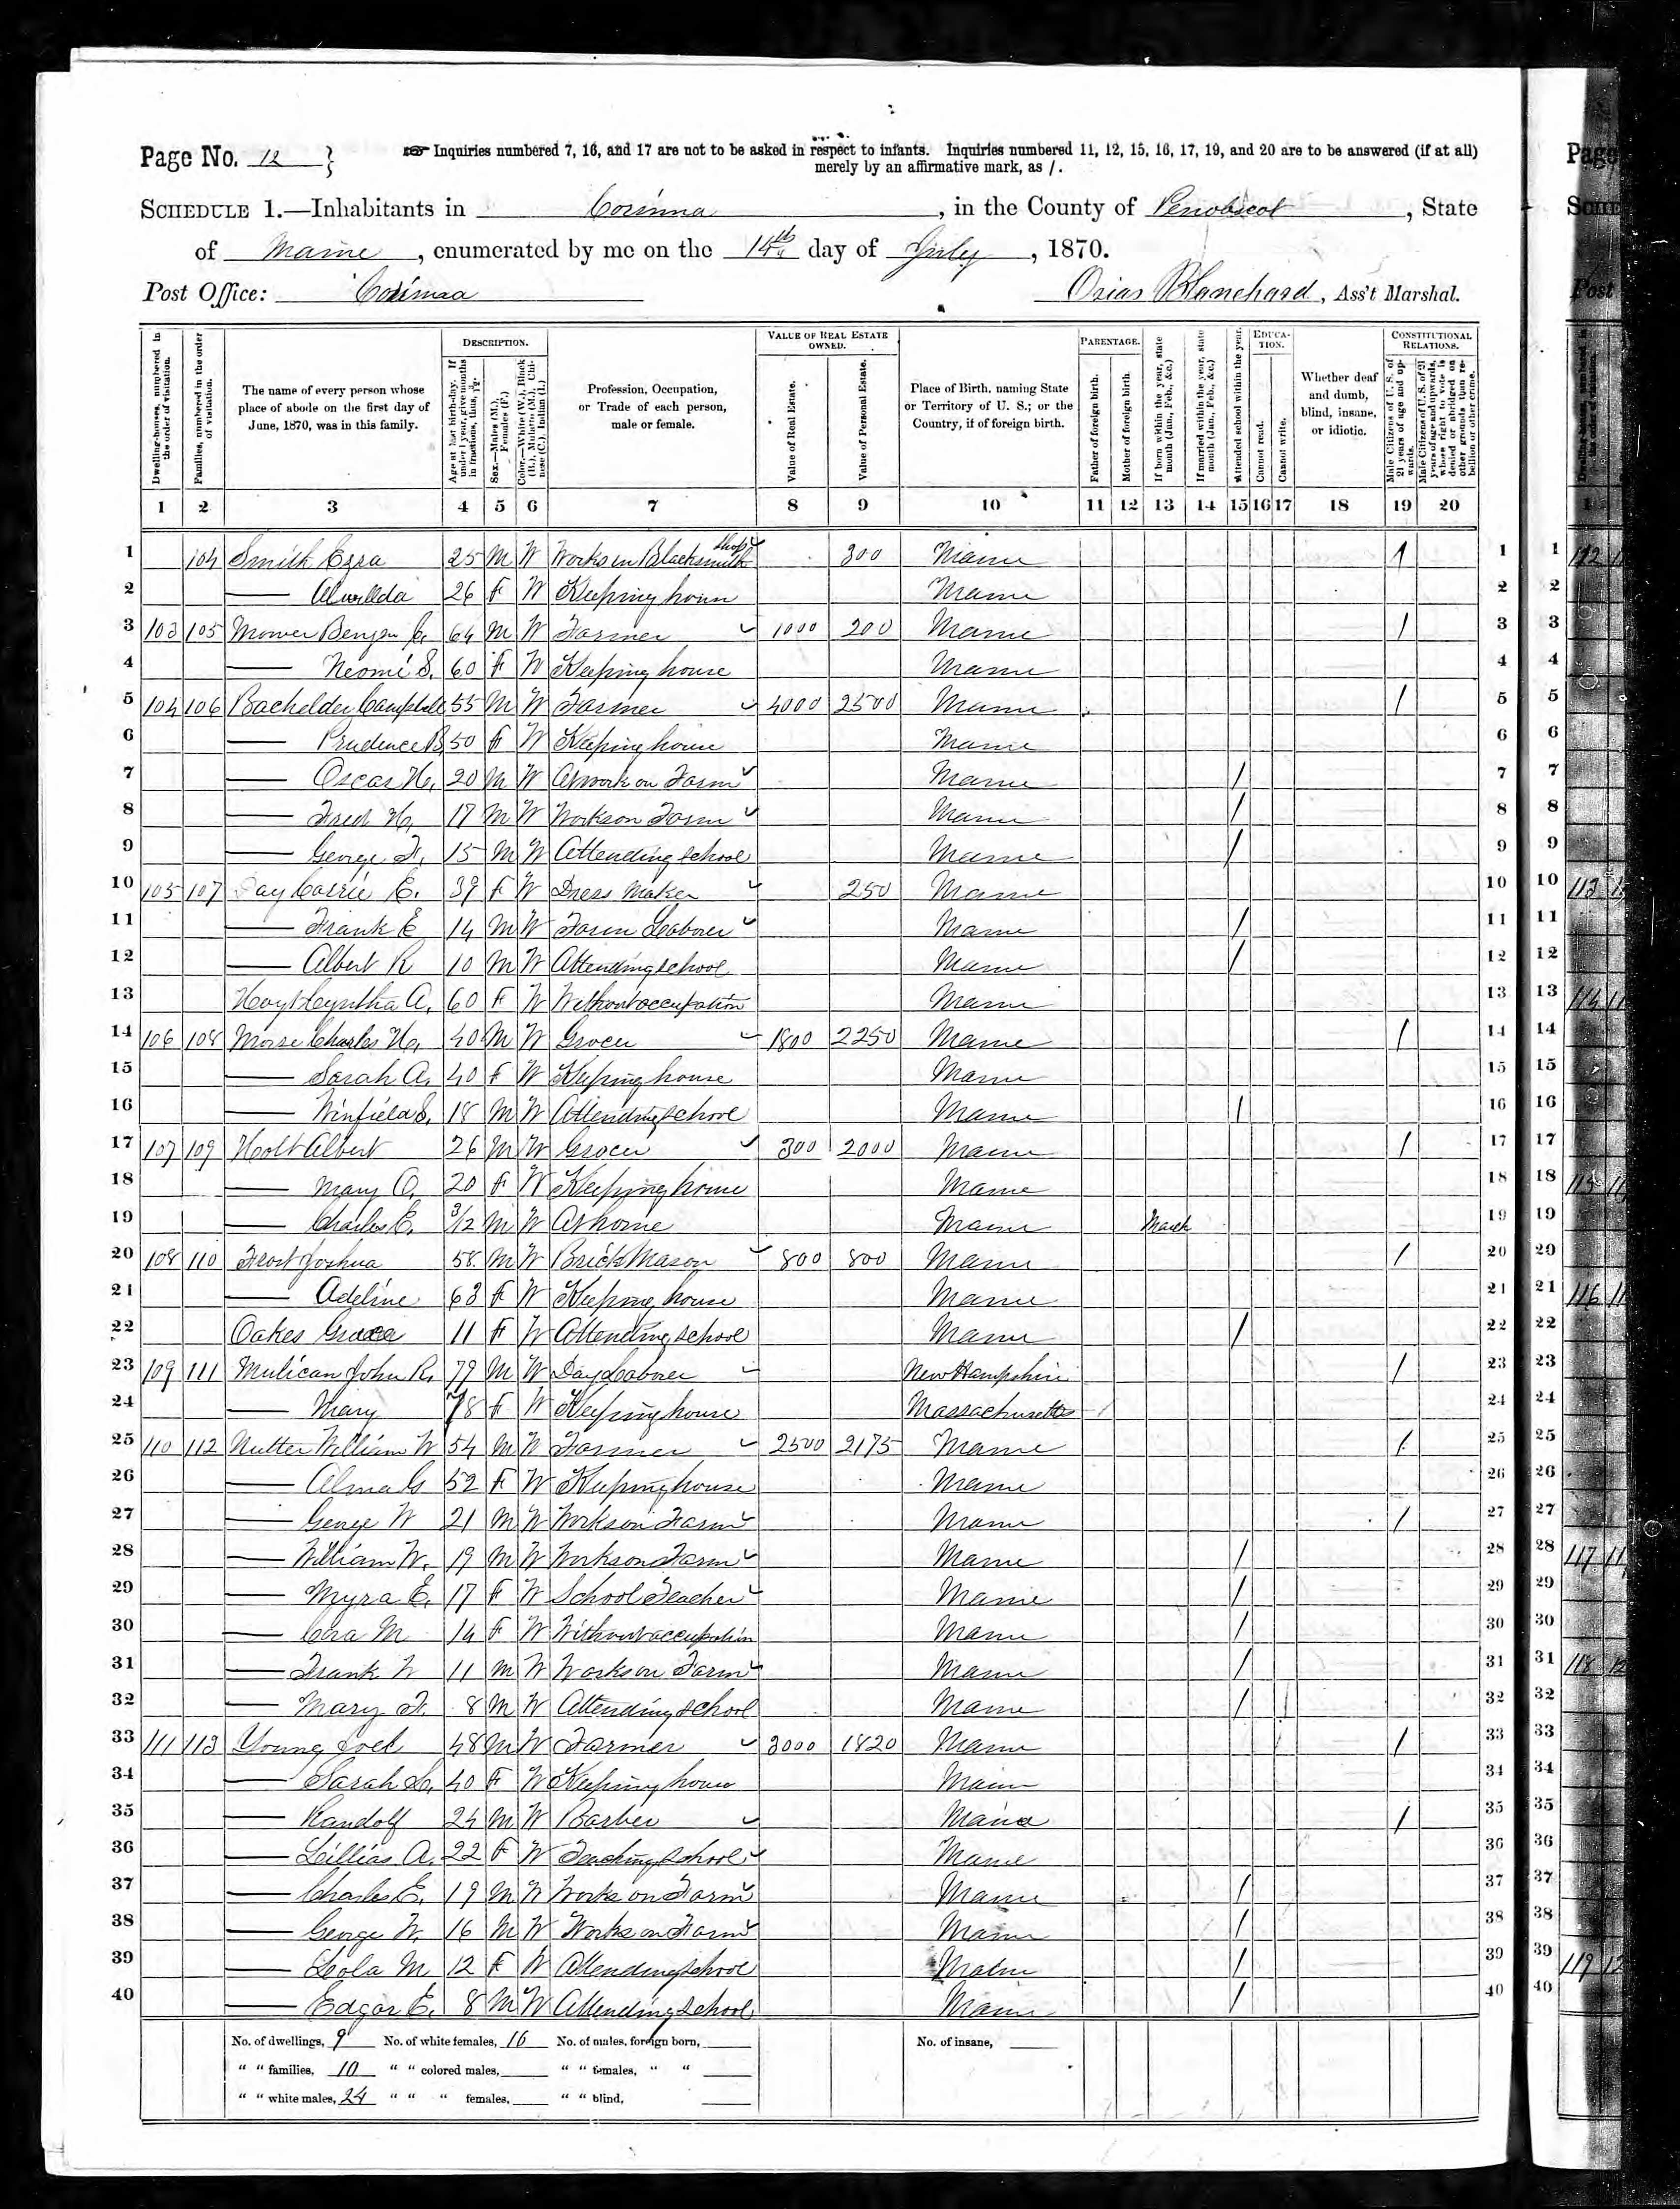 Page No. 12
Inquiries numbered 7, 16, and 17 are not to be asked in respect to infants. Inquiries numbered 11, 12, 15, 16, 17, 19, and 20 are to be answered (if at all)
merely by an affirmative mark, as /.
SCHEDULE 1.—Inhabitants in Corinna, in the County of Penobscot, State
of Maine, enumerated by me on the 14th day of July, 1870.
Post Office: Corinna
Ozias Blanchard, Ass't Marshal.
Dwelling-houses, numbered in the order of visitation.
Families, numbered in the order of visitation.
The name of every person whose place of abode on the first day of June, 1870, was in this family.
DESCRIPTION.
Age at last birth-day. If under 1 year, give months in fractions, thus, 3/12.
Sex.—Males (M.), Females (F.)
Color.—White (W.), Black (B.), Mulatto (M.), Chinese (C.), Indian (I.)
Profession, Occupation, or Trade of each person, male or female.
VALUE OF REAL ESTATE OWNED.
Value of Real Estate.
Value of Personal Estate.
Place of Birth, naming State or Territory of U. S.; or the Country, if of foreign birth.
PARENTAGE.
Father of foreign birth.
Mother of foreign birth.
If born within the year, state month (Jan., Feb., &c.)
If married within the year, state month (Jan., Feb., &c.)
Attended school within the year.
EDUCATION.
Cannot read.
Cannot write.
Whether deaf and dumb, blind, insane, or idiotic.
CONSTITUTIONAL RELATIONS.
Male Citizens of U. S. of 21 years of age and upwards.
Male Citizens of U. S. of 21 years of age and upwards, whose right to vote is denied or abridged on other grounds than rebellion or other crime.
1 2 3 4 5 6 7 8 9 10 11 12 13 14 15 16 17 18 19 20
1 104 Smith Ezra 25 M W Works in Blacksmith shop 300 Maine / 1
2 — Alwilda 26 F W Keeping house Maine 2
3 103 105 Mower Benjn C. 64 M W Farmer 1000 200 Maine / 3
4 — Neomi S. 60 F W Keeping house Maine 4
5 104 106 Bachelder Campbell 55 M W Farmer 4000 2500 Maine / 5
6 — Prudence B. 50 F W Keeping house Maine 6
7 — Oscar H. 20 M W At work on Farm Maine / 7
8 — Fred H. 17 M W Works on Farm Maine / 8
9 — George F. 15 M W Attending school Maine / 9
10 105 107 Day Carrie E. 39 F W Dress Maker 250 Maine 10
11 — Frank E 14 M W Farm Laborer Maine / 11
12 — Albert R 10 M W Attending school Maine / 12
13 Hoyt Cyntha A. 60 F W Without occupation Maine 13
14 106 108 Morse Charles H. 40 M W Grocer 1800 2250 Maine / 14
15 — Sarah A. 40 F W Keeping house Maine 15
16 — Winfield S. 18 M W Attending school Maine / 16
17 107 109 Holt Albert 26 M W Grocer 300 2000 Maine / 17
18 — Mary O. 20 F W Keeping house Maine 18
19 — Charles E. 3/12 M W At home Maine March 19
20 108 110 Frost Joshua 58 M W Brick Mason 800 800 Maine / 20
21 — Adeline 63 F W Keeping house Maine 21
22 Oakes Grace 11 F W Attending school Maine / 22
23 109 111 Mulican John R. 79 M W Day Laborer New Hampshire / 23
24 — Mary 78 F W Keeping house Massachusetts / 24
25 110 112 Nutter William W 54 M W Farmer 2500 2175 Maine / 25
26 — Alma G 52 F W Keeping house Maine 26
27 — George W 21 M W Works on Farm Maine / 27
28 — William W. 19 M W Works on Farm Maine / 28
29 — Myra E. 17 F W School Teacher Maine / 29
30 — Cora M 14 F W Without occupation Maine / 30
31 — Frank W 11 M W Works on Farm Maine / 31
32 — Mary F. 8 M W Attending school Maine / 32
33 111 113 Young Joel 48 M W Farmer 3000 1820 Maine / 33
34 — Sarah L. 40 F W Keeping house Maine 34
35 — Randolf 24 M W Barber Maine / 35
36 — Lillias A. 22 F W Teaching school Maine 36
37 — Charles E. 19 M W Works on Farm Maine / 37
38 — George W. 16 M W Works on Farm Maine / 38
39 — Lola M 12 F W Attending school Maine / 39
40 — Edgar E. 8 M W Attending school Maine / 40
No. of dwellings, 9 No. of white females, 16 No. of males, foreign born, No. of insane,
" " families, 10 " " colored males, " " females, " "
" " white males, 24 " " " females, " " blind,